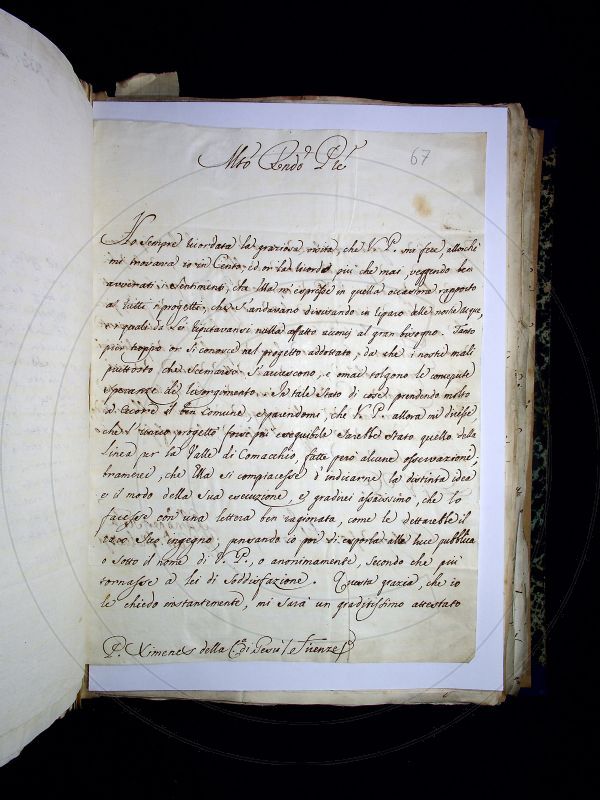 Mto Rndo Pre
67
Ho sempre ricordata la graziosa visita, che V. P. mi fece, allorchè
mi trovava io in Cento, ed or la ricordo più che mai veggendo ben
avverati i sentimenti, che Ella mi espresse in quella occasione rapporto
ai tutti i progetti, che s'andavano divisando in riparo alle nostre acque,
e quali da lei riputavansi nulla affatto al gran bisogno. Tanto
pur troppo or si conosce nel progetto addottato, da che i nostri mali
piuttosto che scemarsi s'accrescono, e omai tolgono le concepute
speranze di risorgimento. In tale stato di cose prendendo molto
a cuore il ben comune, e parendomi, che V. P. allora mi dicesse
che l'unico progetto forse più eseguibile sarebbe stato quello della
linea per la Valle di Comacchio, fatte però alcune osservazioni;
bramerei, che Ella si compiacesse d'indicarne la distinta idea
e il modo della sua esecuzione, e gradirei assaissimo, che lo
facesse con una lettera ben ragionata, come le detterebbe il
raro suo ingegno, pensando io poi di esporla alla luce pubblica
o sotto il nome di V. P., o anonimamente, secondo che più
tornasse a lei di soddisfazione. Questa grazia, che io
le chiedo instantemente, mi sarà un graditissimo attestato
P. Ximenes della Ca di Gesù Firenze